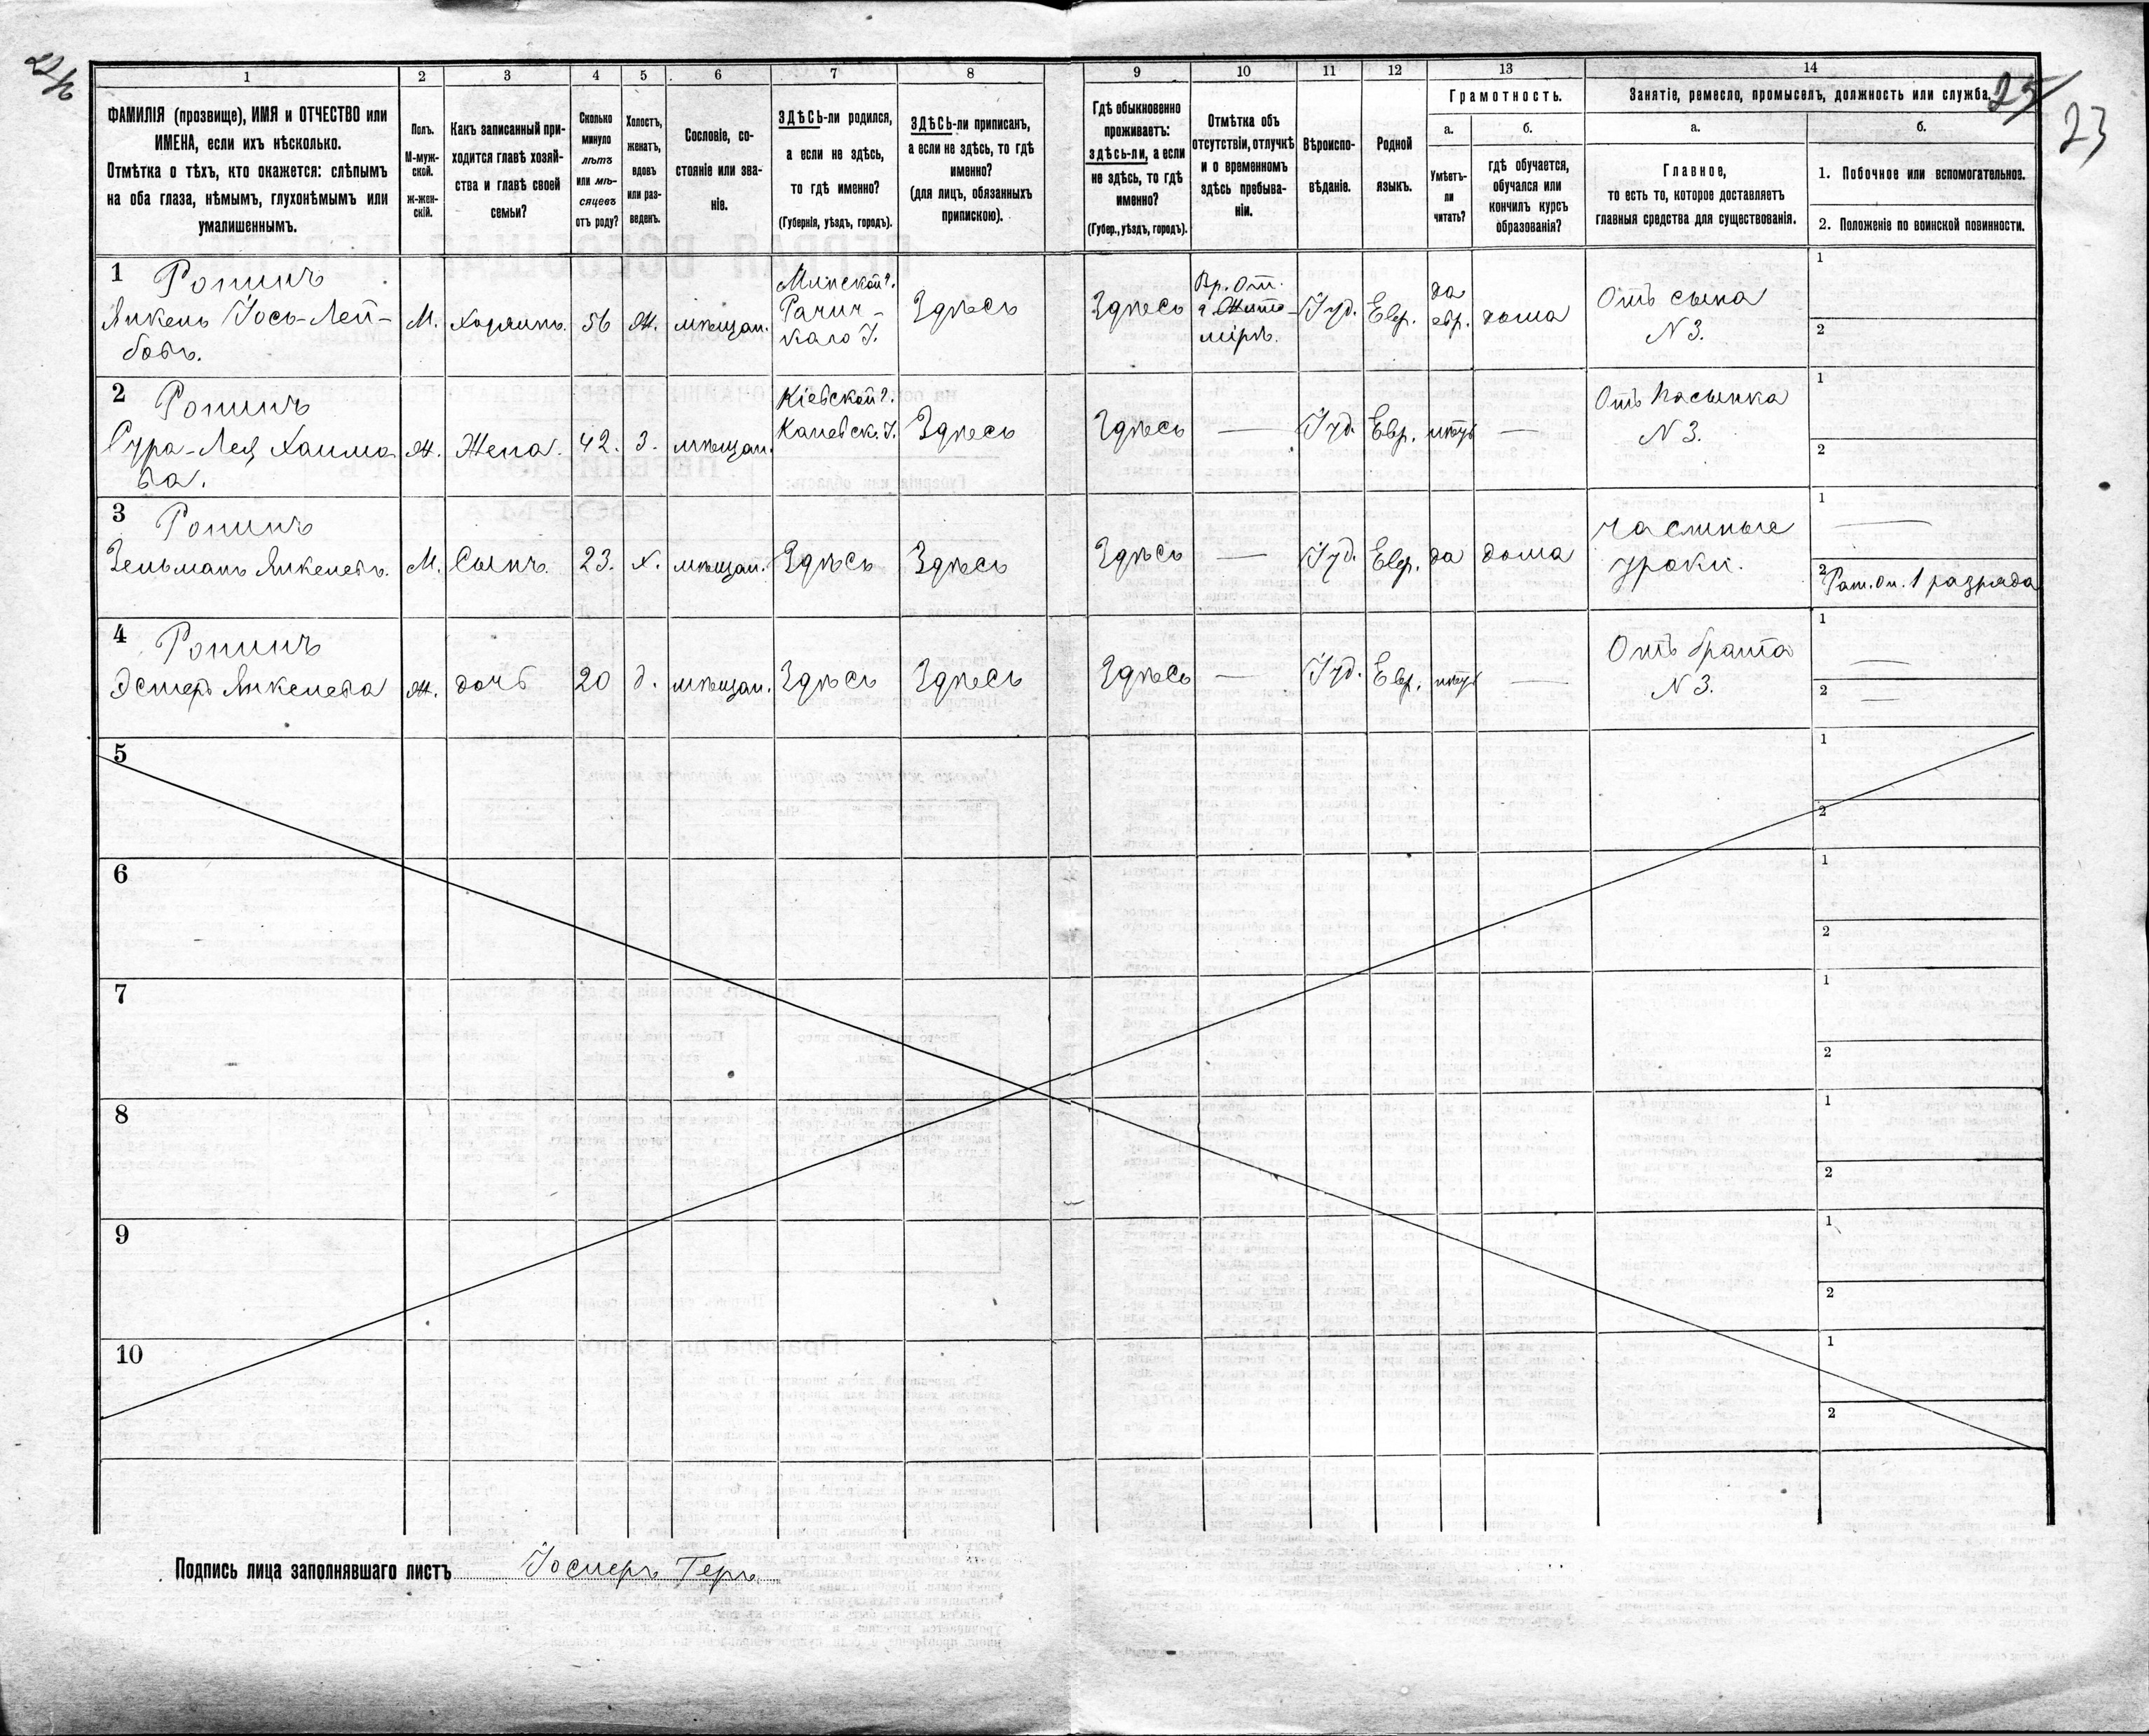 25
23
1 2 3 4 5 6 7 8 9 10 11 12 13 14
ФАМИЛІЯ (прозвище), ИМЯ и ОТЧЕСТВО или
ИМЕНА, если ихъ нѣсколько.
Отмѣтка о тѣхъ, кто окажется: слѣпымъ
на оба глаза, нѣмымъ, глухонѣмымъ или
умалишеннымъ.
Полъ.
М-муж-
ской.
ж-жен-
скій.
Какъ записанный при-
ходится главѣ хозяй-
ства и главѣ своей
семьи?
Сколько
минуло
лѣтъ
или мѣ-
сяцевъ
отъ роду?
Холостъ,
женатъ,
вдовъ
или раз-
веденъ.
Сословіе, со-
стояніе или зва-
ніе.
ЗДѢСЬ-ли родился,
а если не здѣсь,
то гдѣ именно?
(Губернія, уѣздъ, городъ).
ЗДѢСЬ-ли приписанъ,
а если не здѣсь, то гдѣ
именно?
(для лицъ, обязанныхъ
припискою).
Гдѣ обыкновенно
проживаетъ:
здѣсь-ли, а если
не здѣсь, то гдѣ
именно?
(Губер., уѣздъ, городъ).
Отмѣтка объ
отсутствіи, отлучкѣ
и о временномъ
здѣсь пребыва-
ніи.
Вѣроиспо-
вѣданіе.
Родной
языкъ.
Грамотность.
а.
Умѣетъ-
ли
читать?
б.
гдѣ обучается,
обучался или
кончилъ курсъ
образованія?
Занятіе, ремесло, промыселъ, должность или служба.
а.
Главное,
то есть то, которое доставляетъ
главныя средства для существованія.
б.
1. Побочное или вспомогательное.
2. Положеніе по воинской повинности.
1 Ронинъ
Янкель Іось-Лей-
бовъ.
М.
Хозяинъ.
56
Ж.
мѣщан.
Минской г.
Здѣсь
Здѣсь
Вр. от.
в Жито-
мірѣ.
Іуд.
Евр.
да
евр.
дома
Отъ сына
N 3.
1
2
2 Ронинъ
Сура-Лея Хаимо
ва.
Ж.
Жена.
42.
З.
мѣщан.
Кіевской г.
Каневск. У.
Здѣсь
Здѣсь
—
Іуд.
Евр.
нѣтъ
—
Отъ Пасынка
N 3.
1
2
3 Ронинъ
Зельманъ Янкелевъ.
М.
Сынъ.
23.
х.
мѣщан.
Здѣсь
Здѣсь
Здѣсь
—
Іуд.
Евр.
да
дома
Частные
уроки.
1 —
2 Рат. оп. 1 разряда
4 Ронинъ
Эстеръ Янкелева
Ж.
дочь
20
д.
мѣщан.
Здѣсь
Здѣсь
Здѣсь
—
Іуд.
Евр.
нѣтъ
—
Отъ брата
N 3.
1 —
2 —
5
1
2
6
1
2
7
1
2
8
1
2
9
1
2
10
1
2
Подпись лица заполнявшаго листъ